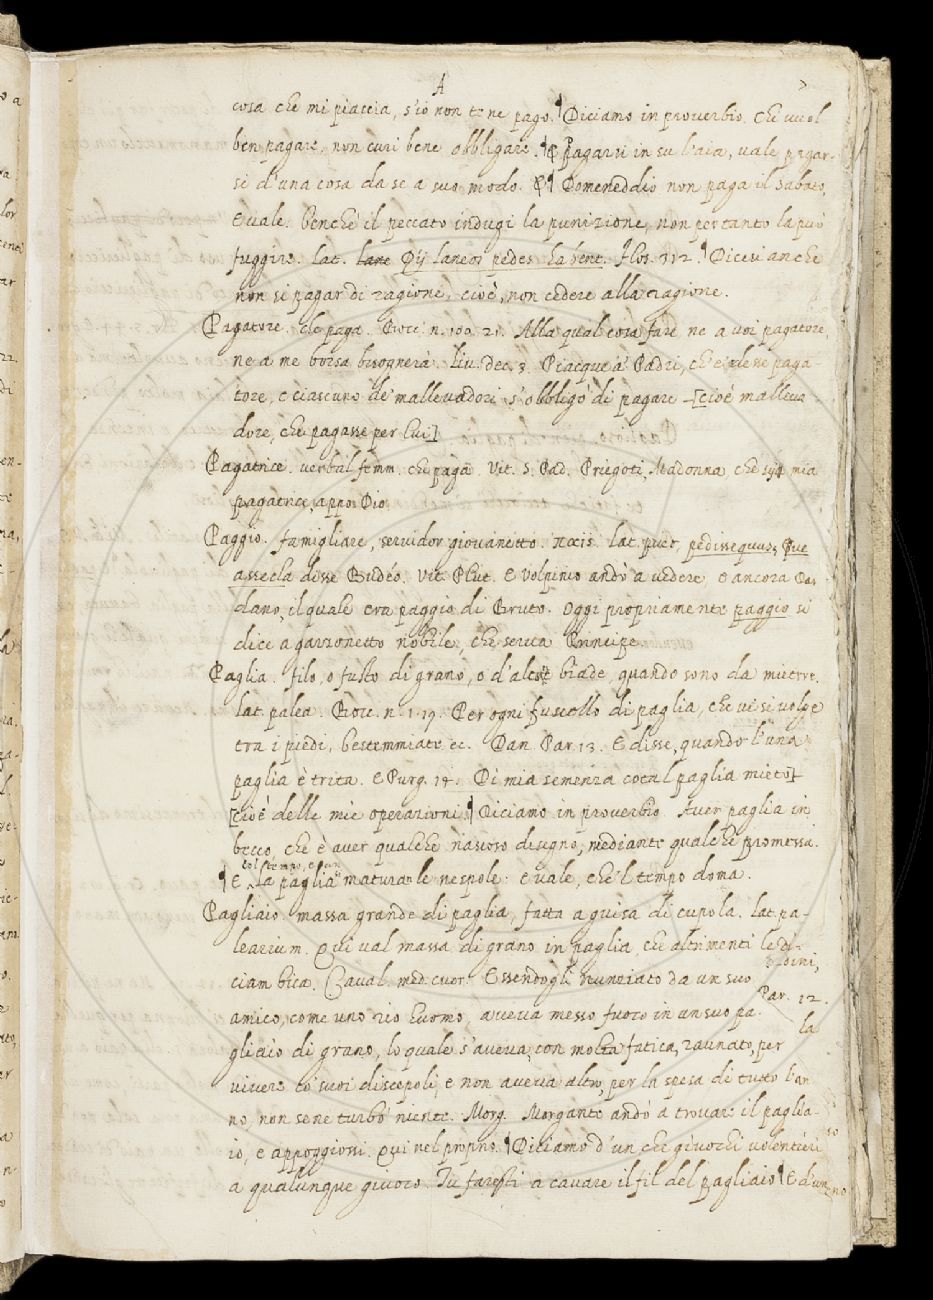 A
cosa che mi piaccia, s'io non te ne pago. ¶ Diciamo in proverbio. Chi vuol
ben pagare, non curi bene obbligare. ¶ E pagarsi in su l'aia, vale pagar-
si d'una cosa da se a suo modo. ¶ Domeneddio non paga il sabato,
E vale. benchè il peccato indugi la punizione, non pertanto la può
fuggire. lat. lane Dij laneos pedes habent. Flos. 312. ¶ Dicesi anche
non si pagar di ragione, cioè, non cedere alla ragione.
Pagatore. che paga. Bocc. n. 100. 21. Alla qual cosa fare ne a voi pagatore,
ne a me borsa bisognerà. Liv. dec. 3. Piacque a' Padri, ch'e' paga-
tore, e ciascuno de' mallevadori s'obbligò di pagare [cioè malleva-
dore, che pagasse per lui]
Pagatrice. verbal femm. che paga. Vit. S. Pad. Priegoti, Madonna, che mia
pagatrice appo Dio.
Paggio. famigliare, servidor giovanetto. παῖς. lat. puer, pedissequus,
assecla disse Budéo. Vit. Plut. E Volpinio andò a vedere, e ancora Dar-
dano, il quale era paggio di Bruto. Oggi propriamente paggio si
dice a garzonetto nobile, che serva Principe.
Paglia. filo, o fusto di grano, o d'alcune biade, quando sono da mietere.
lat. palea. Bocc. n. 1. 19. Per ogni fuscello di paglia, che vi si volge
tra i piedi, bestemmiate ec. Dan. Par. 13. E disse, quando l'una
paglia è trita. E Purg. 14. Di mia semenza cotal paglia mieto
[cioè delle mie operazioni] ¶ Diciamo in proverbio Aver paglia in
becco, che è aver qualche nascoso disegno, mediante qualche promessa.
col tempo, e con
¶ E La paglia maturan le nespole: e vale, che 'l tempo doma.
Pagliaio. massa grande di paglia, fatta a guisa di cupola. lat. pa-
learium. Qui val massa di grano in paglia, che altrimenti le di-
ciam bica. Caval. med. cuor. Essendogli nunziato da un suo
Par. 12.
la
amico, come uno rio huomo, aveva messo fuoco in un suo pa-
gliaio di grano, lo quale s'aveva, con molta fatica, raunato, per
vivere co' suoi discepoli, e non aveva altro, per la spesa di tutto l'an-
no, non sene turbò niente. Morg. Morgante andò a trovare il paglia-
io, e appoggiossi. Qui nel proprio. ¶ Diciamo d'un che giuochi volentieri
a qualunque giuoco. Tu faresti a cavare il fil del pagliaio ¶ E d'un